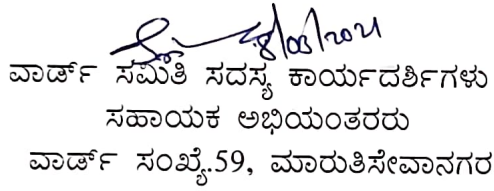 8/03/2021
ವಾರ್ಡ್ ಸಮಿತಿ ಸದಸ್ಯ ಕಾರ್ಯದರ್ಶಿಗಳು
ಸಹಾಯಕ ಅಭಿಯಂತರರು
ವಾರ್ಡ್ ಸಂಖ್ಯೆ.59, ಮಾರುತಿಸೇವಾನಗರ